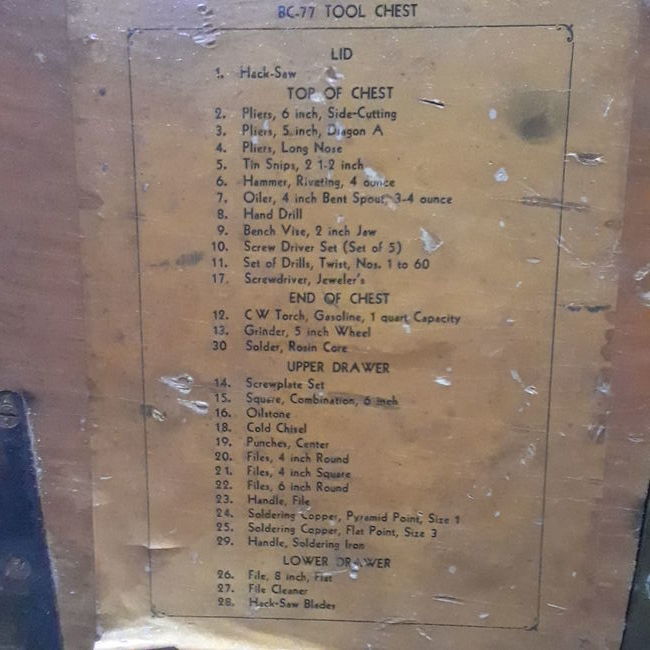 BC-77 TOOL CHEST
LID
1. Hack-Saw
TOP OF CHEST
2. Pliers, 6 inch, Side-Cutting
3. Pliers, 5 inch, Diagon A
4. Pliers, Long Nose
5. Tin Snips, 2 1-2 inch
6. Hammer, Riveting, 4 ounce
7. Oiler, 4 inch Bent Spout, 3-4 ounce
8. Hand Drill
9. Bench Vise, 2 inch Jaw
10. Screw Driver Set (Set of 5)
11. Set of Drills, Twist, Nos. 1 to 60
17. Screwdriver, Jeweler's
END OF CHEST
12. C W Torch, Gasoline, 1 quart Capacity
13. Grinder, 5 inch Wheel
30 Solder, Rosin Core
UPPER DRAWER
14. Screwplate Set
15. Square, Combination, 6 inch
16. Oilstone
18. Cold Chisel
19. Punches, Center
20. Files, 4 inch Round
21. Files, 4 inch Square
22. Files, 6 inch Round
23. Handle, File
24. Soldering Copper, Pyramid Point, Size 1
25. Soldering Copper, Flat Point, Size 3
29. Handle, Soldering Iron
LOWER DRAWER
26. File, 8 inch, Flat
27. File Cleaner
28. Hack-Saw Blades